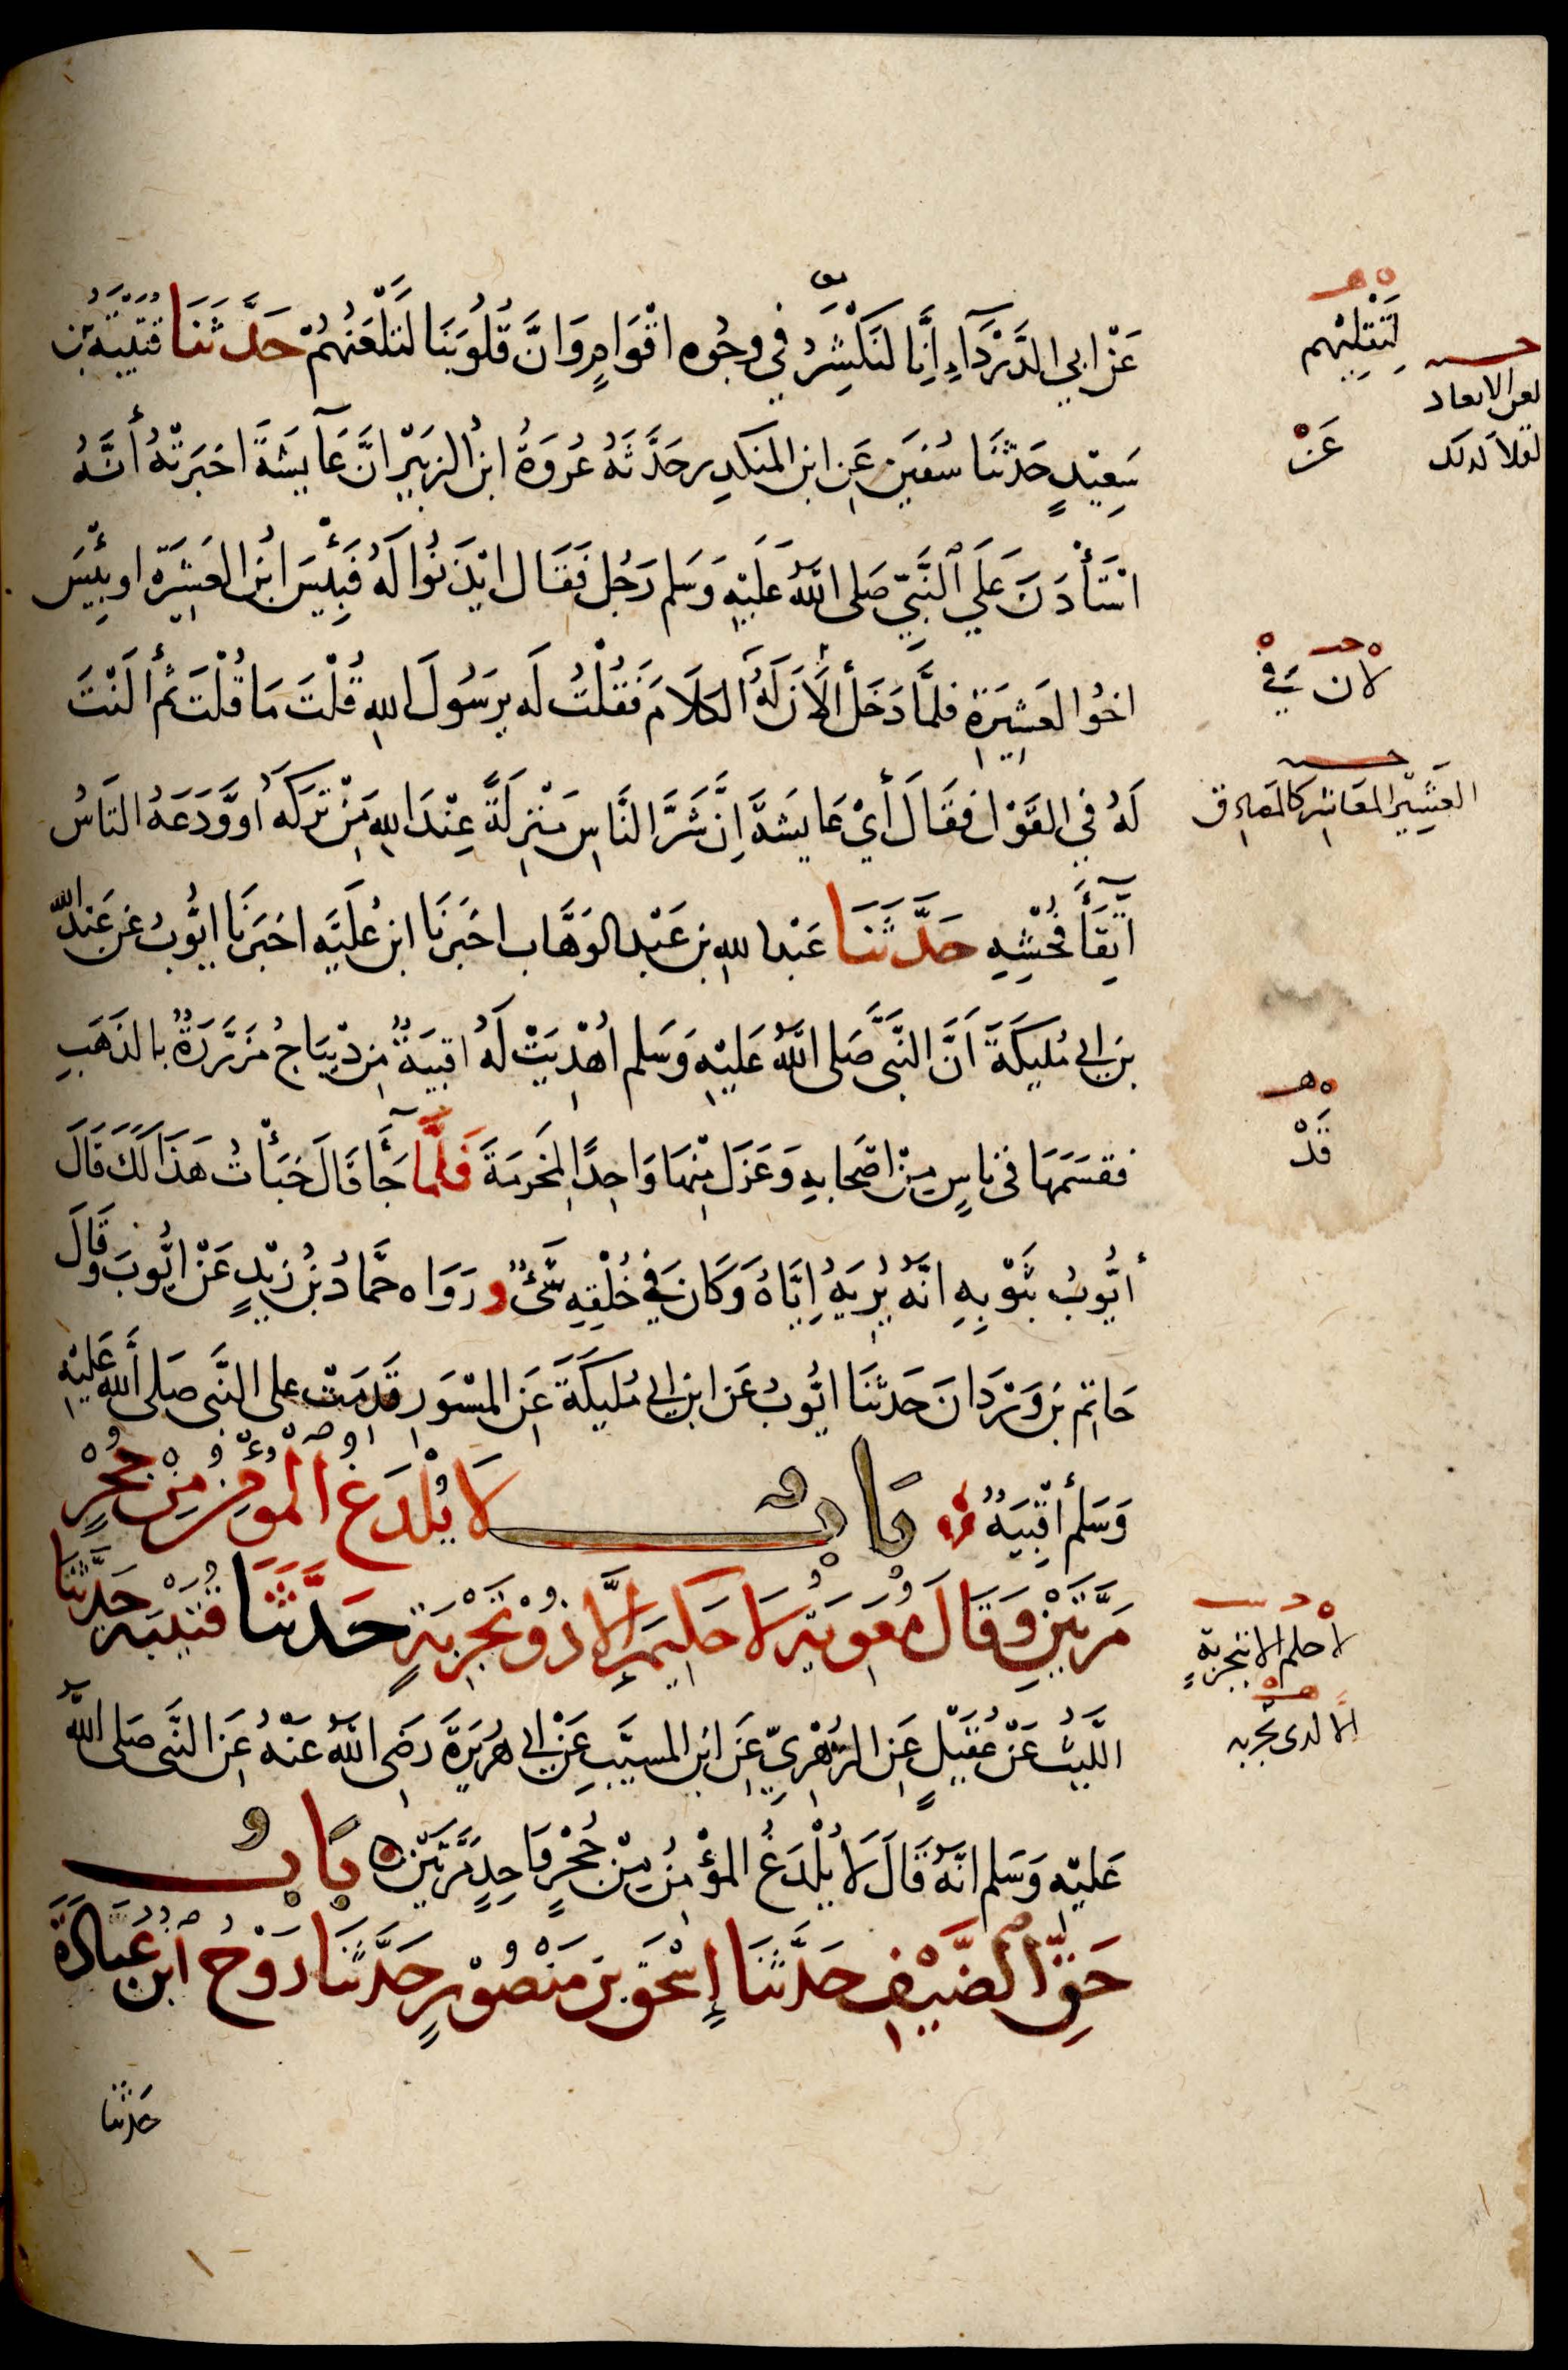 عَنْ ابي الدَّرْدَآءِ اِنَّا لَنَكْشِرُ في وجُوه اقْوَامٍ وَانَّ قُلُوبَنَا لَتَلْعَنُهُمْ حَدَّثَنَا قُتَيْبَةُ بن
لَتَقْلِيْهِم
سَعِيْدٍ حَدّثَنَا سُفيَن عَنِ ابن المنكدِر حَدَّثَهُ عُروَةُ ابنُ الزبَيْرِ انَّ عَآيشَةَ اخبَرَتْهُ أنَّهُ
عَنْ
اسْتَأْذَنَ عَلَي النَّبيِّ صَلى اللهُ عَلَيْهِ وَسَلم رَجُل فَقَال ايْذَنُوا لَهُ فَبِئْسَ ابْنُ العَشِيْرَةِ او بِئْسَ
اخُوا لعَشِيَرَةِ فلمَّا دَخَلَ ألَانَ لَهُ الكلَامَ فَقُلْتُ لَه يرَسُولَ اللهِ قُلْتَ مَا قُلْتَ ثُم أ لَنْتَ
لَهُ فِي القَوْل فَقَالَ أيْ عَايشَةُ اِنَّ شَرَّ النَّاسِ مَنْزِلَةً عِنْدَ اللهِ مَنْ تَرَكَهُ اَوْوَدَعَهُ النَاسُ
العَشِيْرالمعَاشر
اتِّقَآءَ فُحْشِهِ حَدَّثَنَا عَبْد الله بن عَبْد الوَهَّاب اخبَرنَا ابن عُلَيَّه اخبَرَنَا ايُّوبُ عَن عَبْد اللّه
بن ابي مُليكَةَ اَنَّ النَّبيَّ صَلى اللهُ عَليْهِ وَسَلم اهْدِيَتْ لَهُ اقبيَةٌ مِن ديْبَاج مُزَرَّرَةٌ بالذَهَبِ
فقسَمَهَا في ناسٍ مِنْ اصْحَابهِ وَعَزَل مِنْهَا وَاحِدًا لمخرَمَةَ فَلمَّا جَآءَ قَالَ خَبَأْتُ هَذَا لَكَ قَالَ
قَدْ
أيُّوبُ بثَوْبِهِ انَّهُ يُرِيَهُ اِيَّاهُ وَكَانَ فِي خُلْقِهِ شَيْءٌ ورَوَاه حَمَّادُ بْنُ زَيْدٍ عَنْ ايُّوبَ وَقَالَ
حَاتِم بن وَرْدَانَ حَدثَنَا ايُّوبُ عَن ابن ابي مُليكَةَ عَن المسْوَر قَدمَتْ على النَّبيِّ صَلى اللهُ عَليْهِ
وَسَلم أقْبِيَةٌ بَابٌ لَا يُلْدَغُ المُؤمنُ مِنْ جُحْرٍ
مَرَّتَيْنِ وَقَالَ مُعَوِيَة لَا حَكِيْمَ إلَّا ذُوْ تَجْرِبَةٍ حَدَّثَنَا قُتَيْبَة حَدَّثَنَا
لا حلم الا بتجربةٍ
الا لذي تجربه
اللَّيثُ عَنْ عُقَيْلٍ عَن الزُهْرِيِّ عَن ابْن المسيَّب عَنْ ابي هُرَيرَةَ رَضَي اللهُ عَنْهُ عَن النَّبي صَلى اللهُ
عَليْه وَسَلم انَّهُ قَالَ لَا يُلْدَغُ المؤْمنُ مِنْ جُحْرٍ وَاحِدٍ مَّرتَيْن بَابُ
حَقِّ الضَّيْفِ حَدَّثَنَا إسْحَق بن مَنْصُوْرٍ حَدَّثَنَا رَوْحُ ابْن عُبَادَةَ
حَدثنا